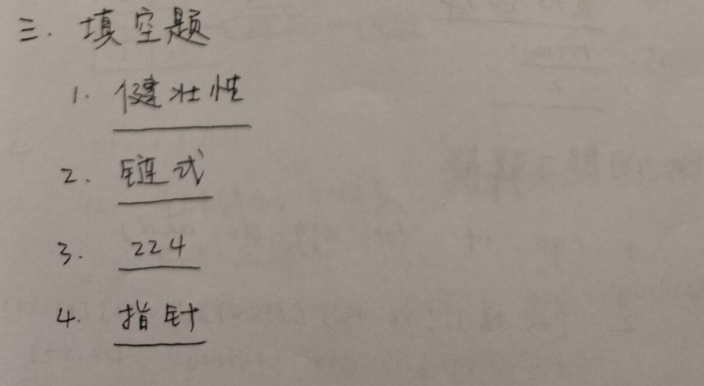 三. 填空题
1. 健壮性
2. 链式
3. 224
4. 指针